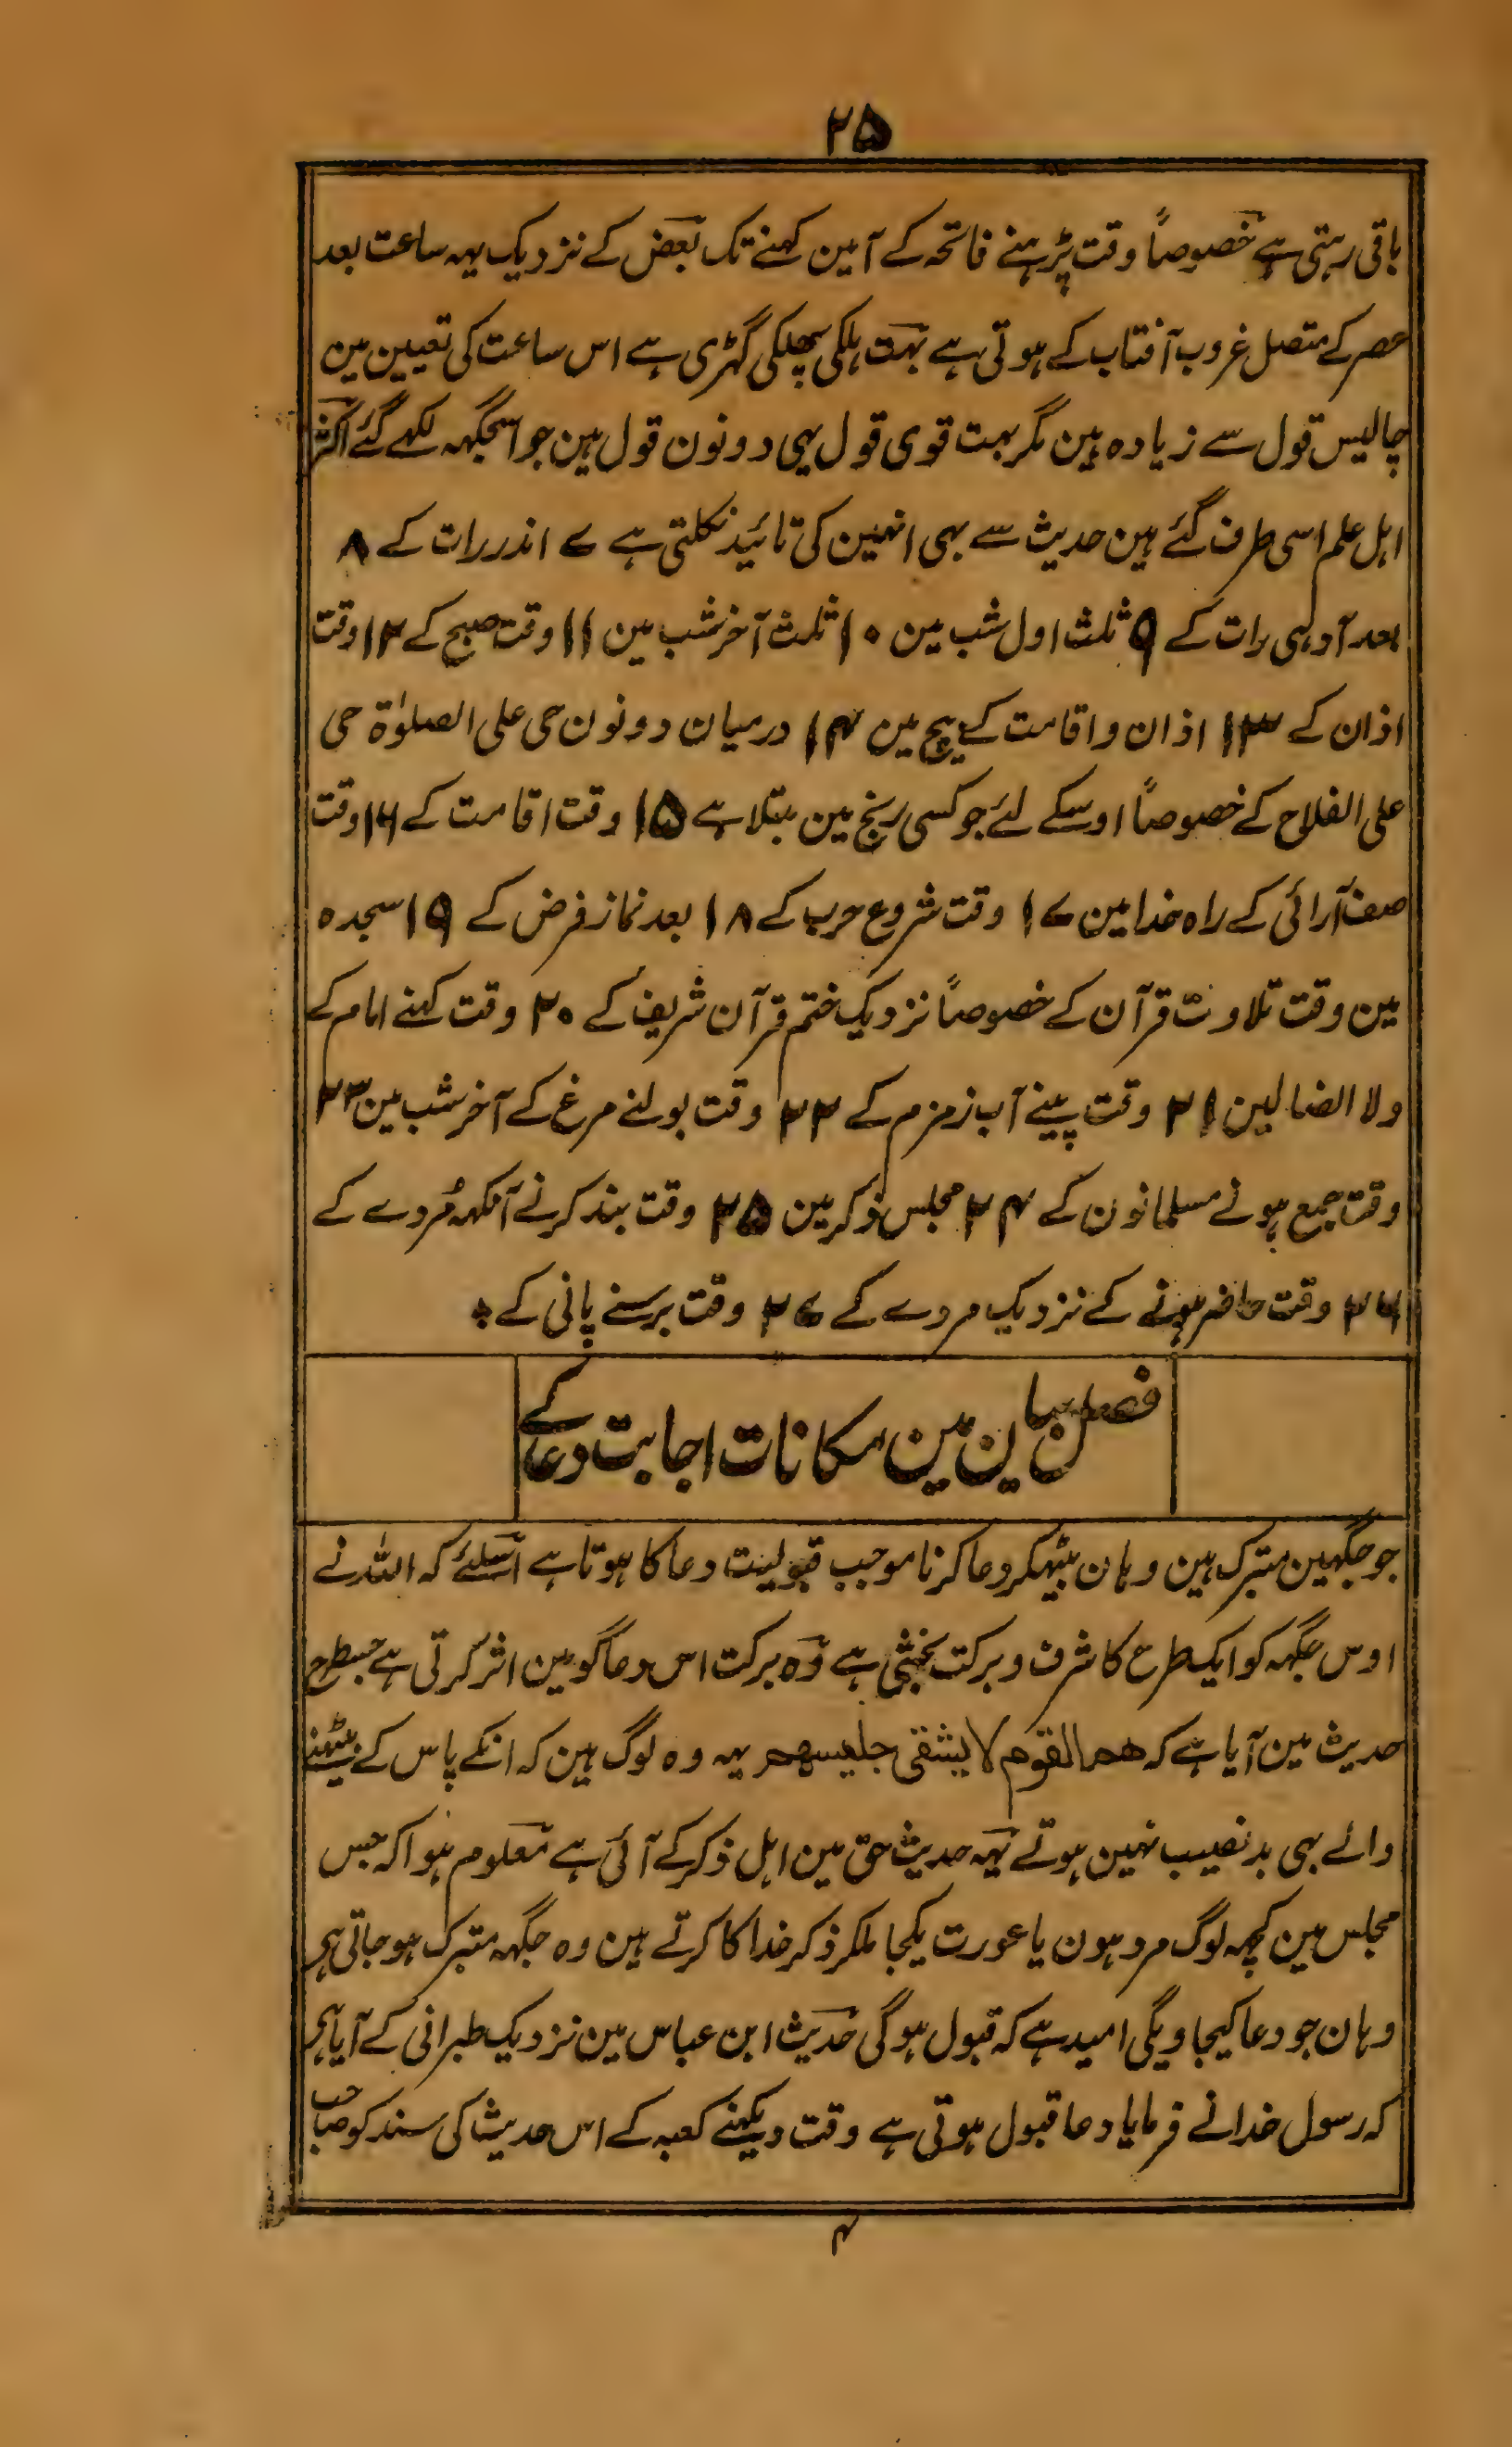 ۲۵
باقی رہتی ہے خصوصاً وقت پڑہنے فاتحہ کے آمین کہنے تک بعض کے نزدیک یہہ ساعت بعد
عصر کے متصل غروب آفتاب کے ہوتی ہے بہت ہلکی پھلکی گہڑی ہے اس ساعت کی تعیین مین
چالیس قول سے زیادہ ہین مگر بہت قوی قول یہی دونون قول ہین جو اسجگہہ لکہے گئے اکثر
اہل علم اسی طرف گئے ہین حدیث سے بہی انہین کی تائید نکلتی ہے ۷ اندر رات کے ۸
بعد آدہی رات کے ۹ ثلث اول شب مین ۱۰ ثلث آخر شب مین ۱۱ وقت صبح کے ۱۲ وقت
اذان کے ۱۳ اذان و اقامت کے بیچ مین ۱۴ درمیان دونون حی علی الصلوٰۃ حی
علی الفلاح کے خصوصاً اوسکے لئے جو کسی رنج مین مبتلا ہے ۱۵ وقت اقامت کے ۱۶ وقت
صف آرائی کے راہ خدا مین ۱۷ وقت شروع حرب کے ۱۸ بعد نماز فرض کے ۱۹ سجدہ
مین وقت تلاوت قرآن کے خصوصاً نزدیک ختم قرآن شریف کے ۲۰ وقت کہنے امام کے
ولا الضالین ۲۱ وقت پینے آب زمزم کے ۲۲ وقت بولنے مرغ کے آخر شب مین ۲۳
وقت جمع ہونے مسلمانون کے ۲۴ مجلس ذکر مین ۲۵ وقت بند کرنے آنکہہ مُردے کے
۲۶ وقت حاضر ہونے کے نزدیک مردے کے ۲۷ وقت برسنے پانی کے *
فصل بیان مین مکانات اجابت دعا کے
جو جگہین متبرک ہین وہان بیٹھکر دعا کرنا موجب قبولیت دعا کا ہوتا ہے اسلئے کہ اللہ نے
اوس جگہہ کو ایک طرح کا شرف و برکت بخشی ہے وہ برکت اس دعاگو مین اثر کرتی ہے جسطرح
حدیث مین آیا ہے کہ ھم القوم لا یشقی جلیسھم یہہ وہ لوگ ہین کہ انکے پاس کے بیٹھنے
والے بہی بدنصیب نہین ہوتے یہہ حدیث حق مین اہل ذکر کے آئی ہے معلوم ہوا کہ جس
مجلس مین کچہہ لوگ مرد ہون یا عورت یکجا ملکر ذکر خدا کا کرتے ہین وہ جگہہ متبرک ہو جاتی ہی
وہان جو دعا کیجاویگی امید ہے کہ قبول ہوگی حدیث ابن عباس مین نزدیک طبرانی کے آیا ہی
کہ رسول خدا نے فرمایا دعا قبول ہوتی ہے وقت دیکہنے کعبہ کے اس حدیث کی سند کو صاحب
۴